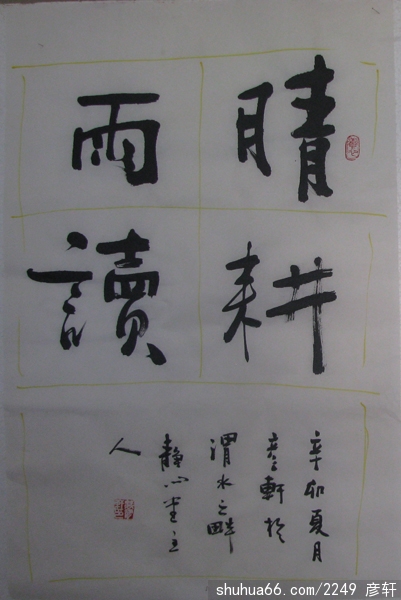 晴耕
雨讀
辛卯夏月
彦軒於
渭水之畔
靜心堂主
人
shuhua66.com/2249 彦轩